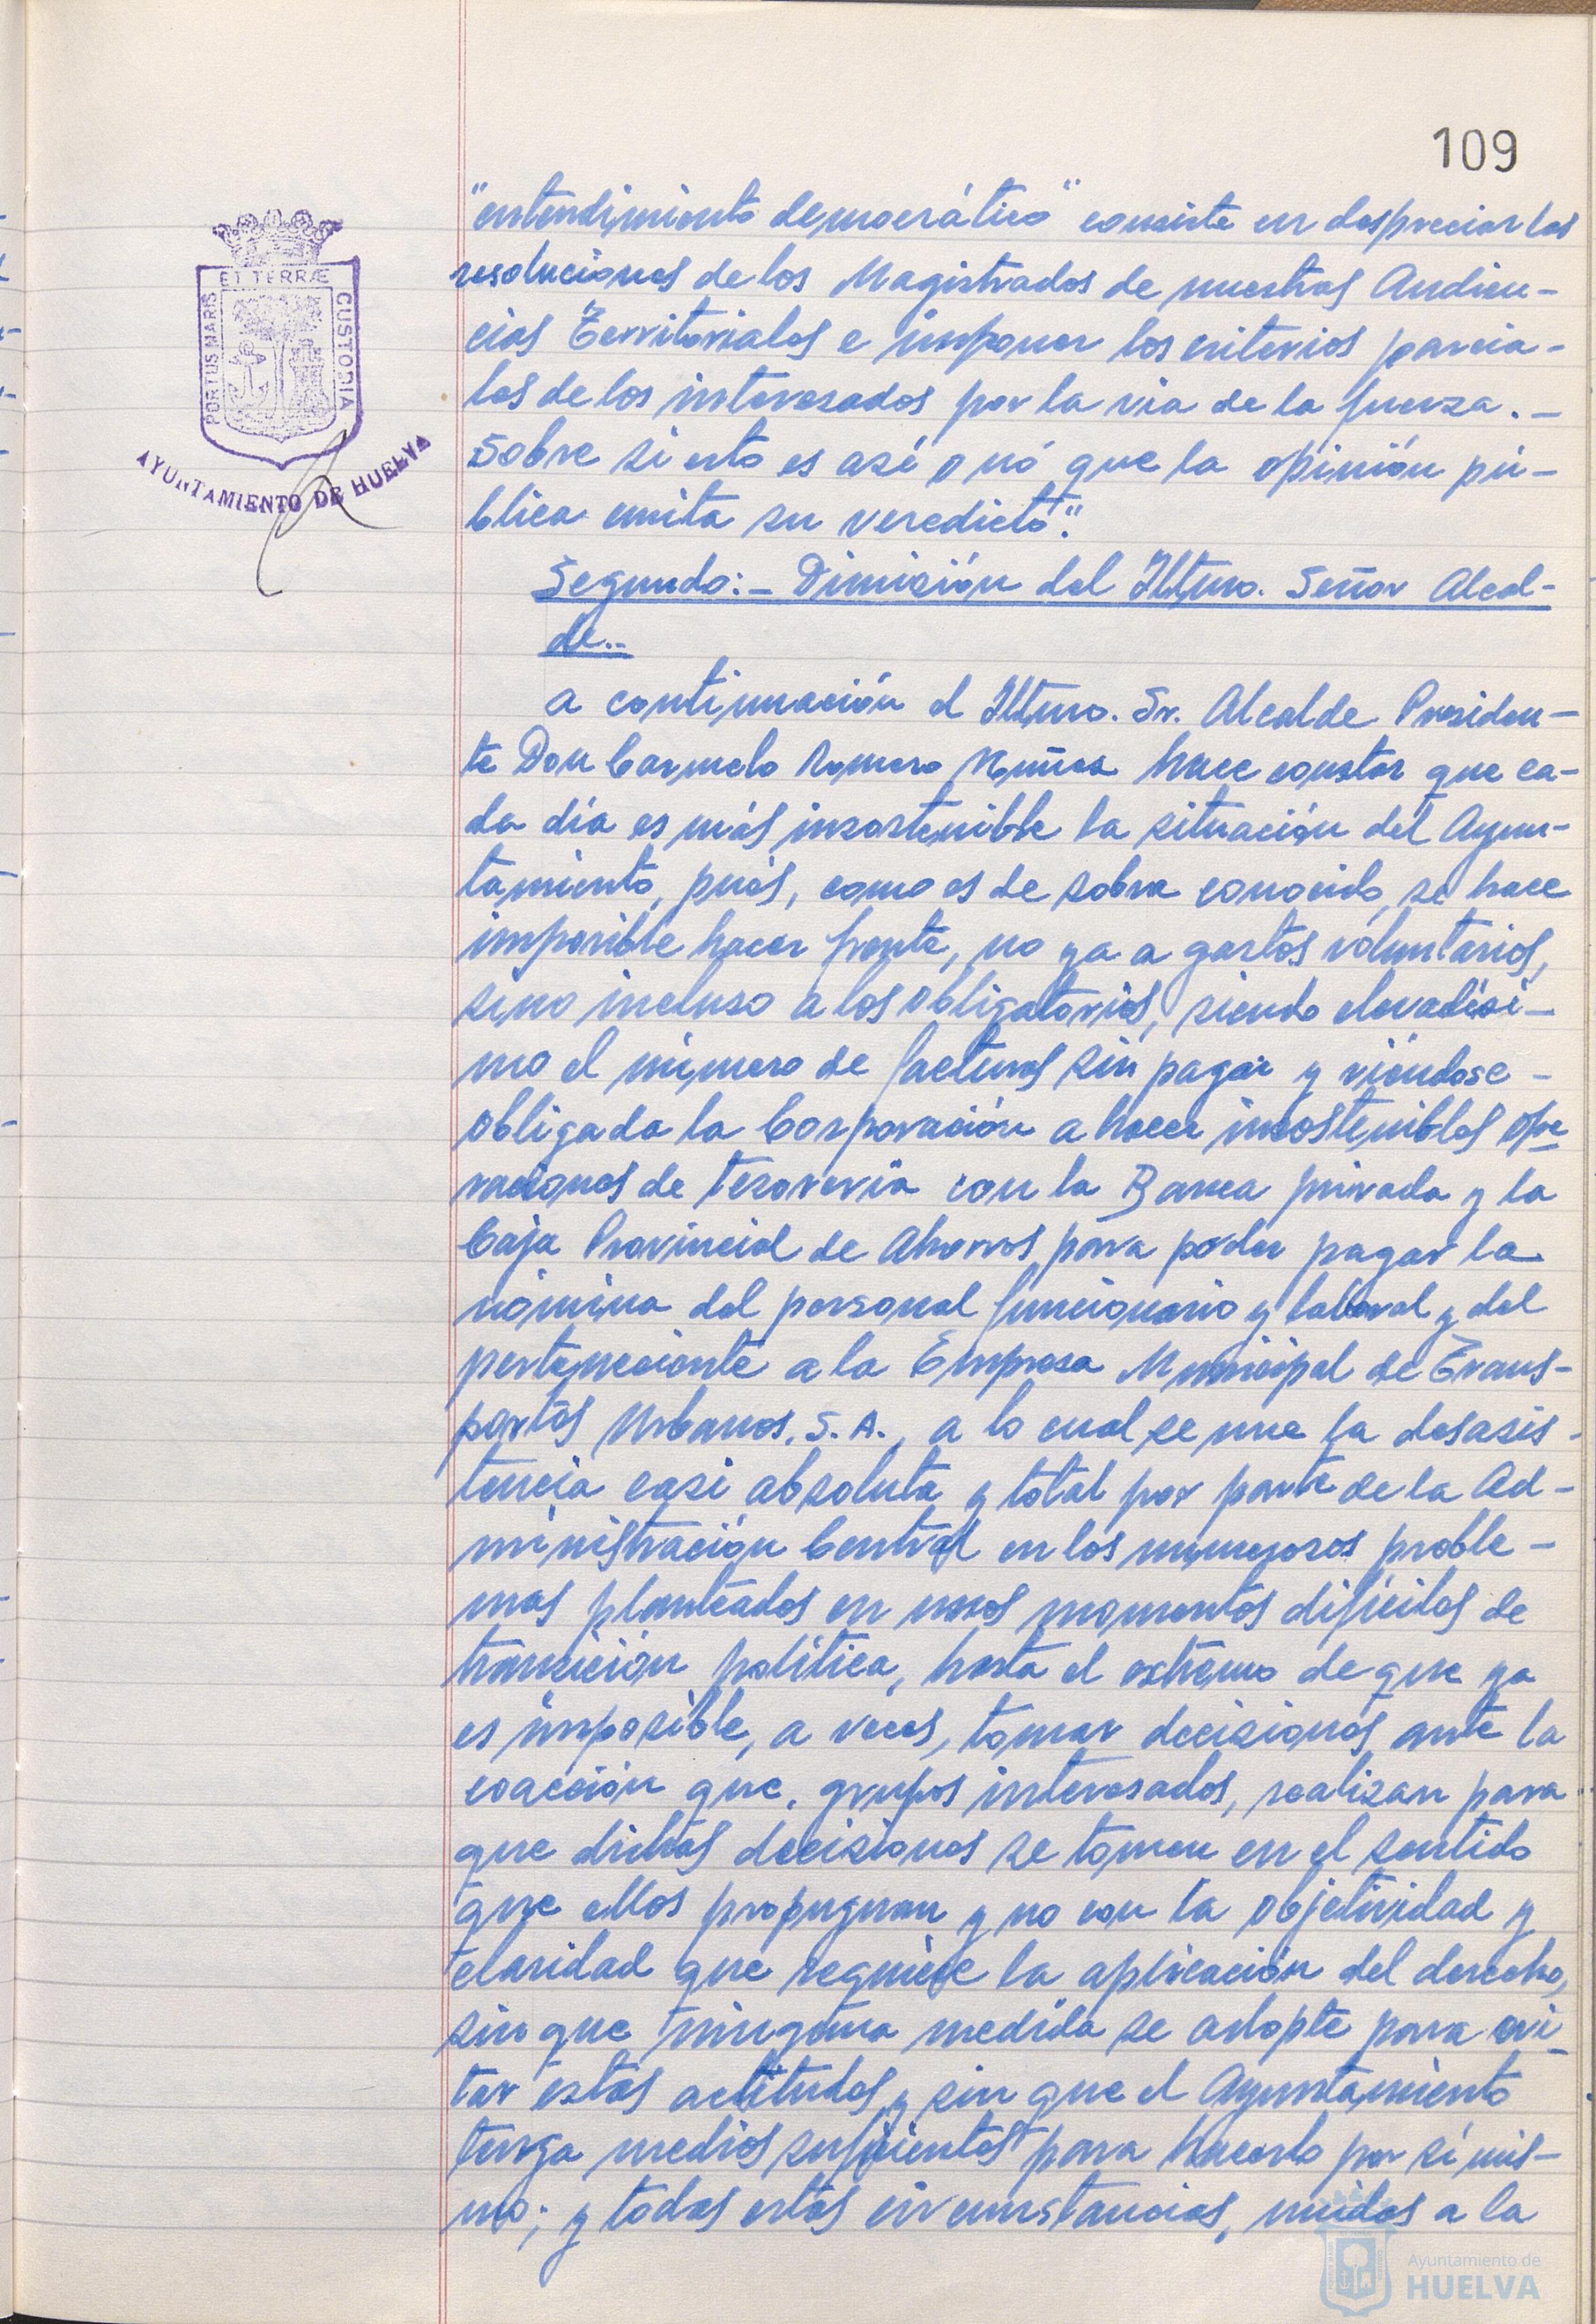 109
"entendimiento democrático" consiste en despreciar las
resoluciones de los Magistrados de nuestras Audien-
cias Territoriales e imponer los criterios parcia-
les de los interesados por la via de la fuerza. -
Sobre si esto es asi o nó que la opinión pú-
blica emita su veredicto".
Segundo:- Dimisión del Iltmo. Señor Alcal-
de..-
A continuación el Iltmo. Sr. Alcalde Presiden-
te Don Carmelo Romero Muñoz hace constar que ca-
da día es más insostenible la situación del Ayun-
tamiento, pués, como es de sobra conocido, se hace
imposible hacer frente, no ya a gastos voluntarios,
sino incluso a los obligatorios, siendo elevadísi-
mo el número de facturas sin pagar y viéndose -
obligada la Corporación a hacer insostenibles ope
raciones de tesorería con la Banca privada y la
Caja Provincial de Ahorros para poder pagar la
nómina del personal funcionario y laboral y del
perteneciente a la Empresa Municipal de Trans-
portes Urbanos, S.A., a lo cual se une la desasis-
tencia casi absoluta y total por parte de la Ad-
ministración Central en los numerosos proble-
mas planteados en unos momentos difíciles de
transición política, hasta el extremo de que ya
es imposible, a veces, tomar decisiones ante la
coacción que, grupos interesados, realizan para
que dichas decisiones se tomen en el sentido
que ellos propugnan y no con la objetividad y
claridad que requiere la aplicación del derecho,
sin que ninguna medida se adopte para evi
tar estas actitudes y sin que el Ayuntamiento
tenga medios suficientes para hacerlo por sí mis-
mo; y todas estas circunstancias, unidas a la
ET TERRÆ
PORTUS MARIS
CUSTODIA
AYUNTAMIENTO DE HUELVA
Ayuntamiento de
HUELVA